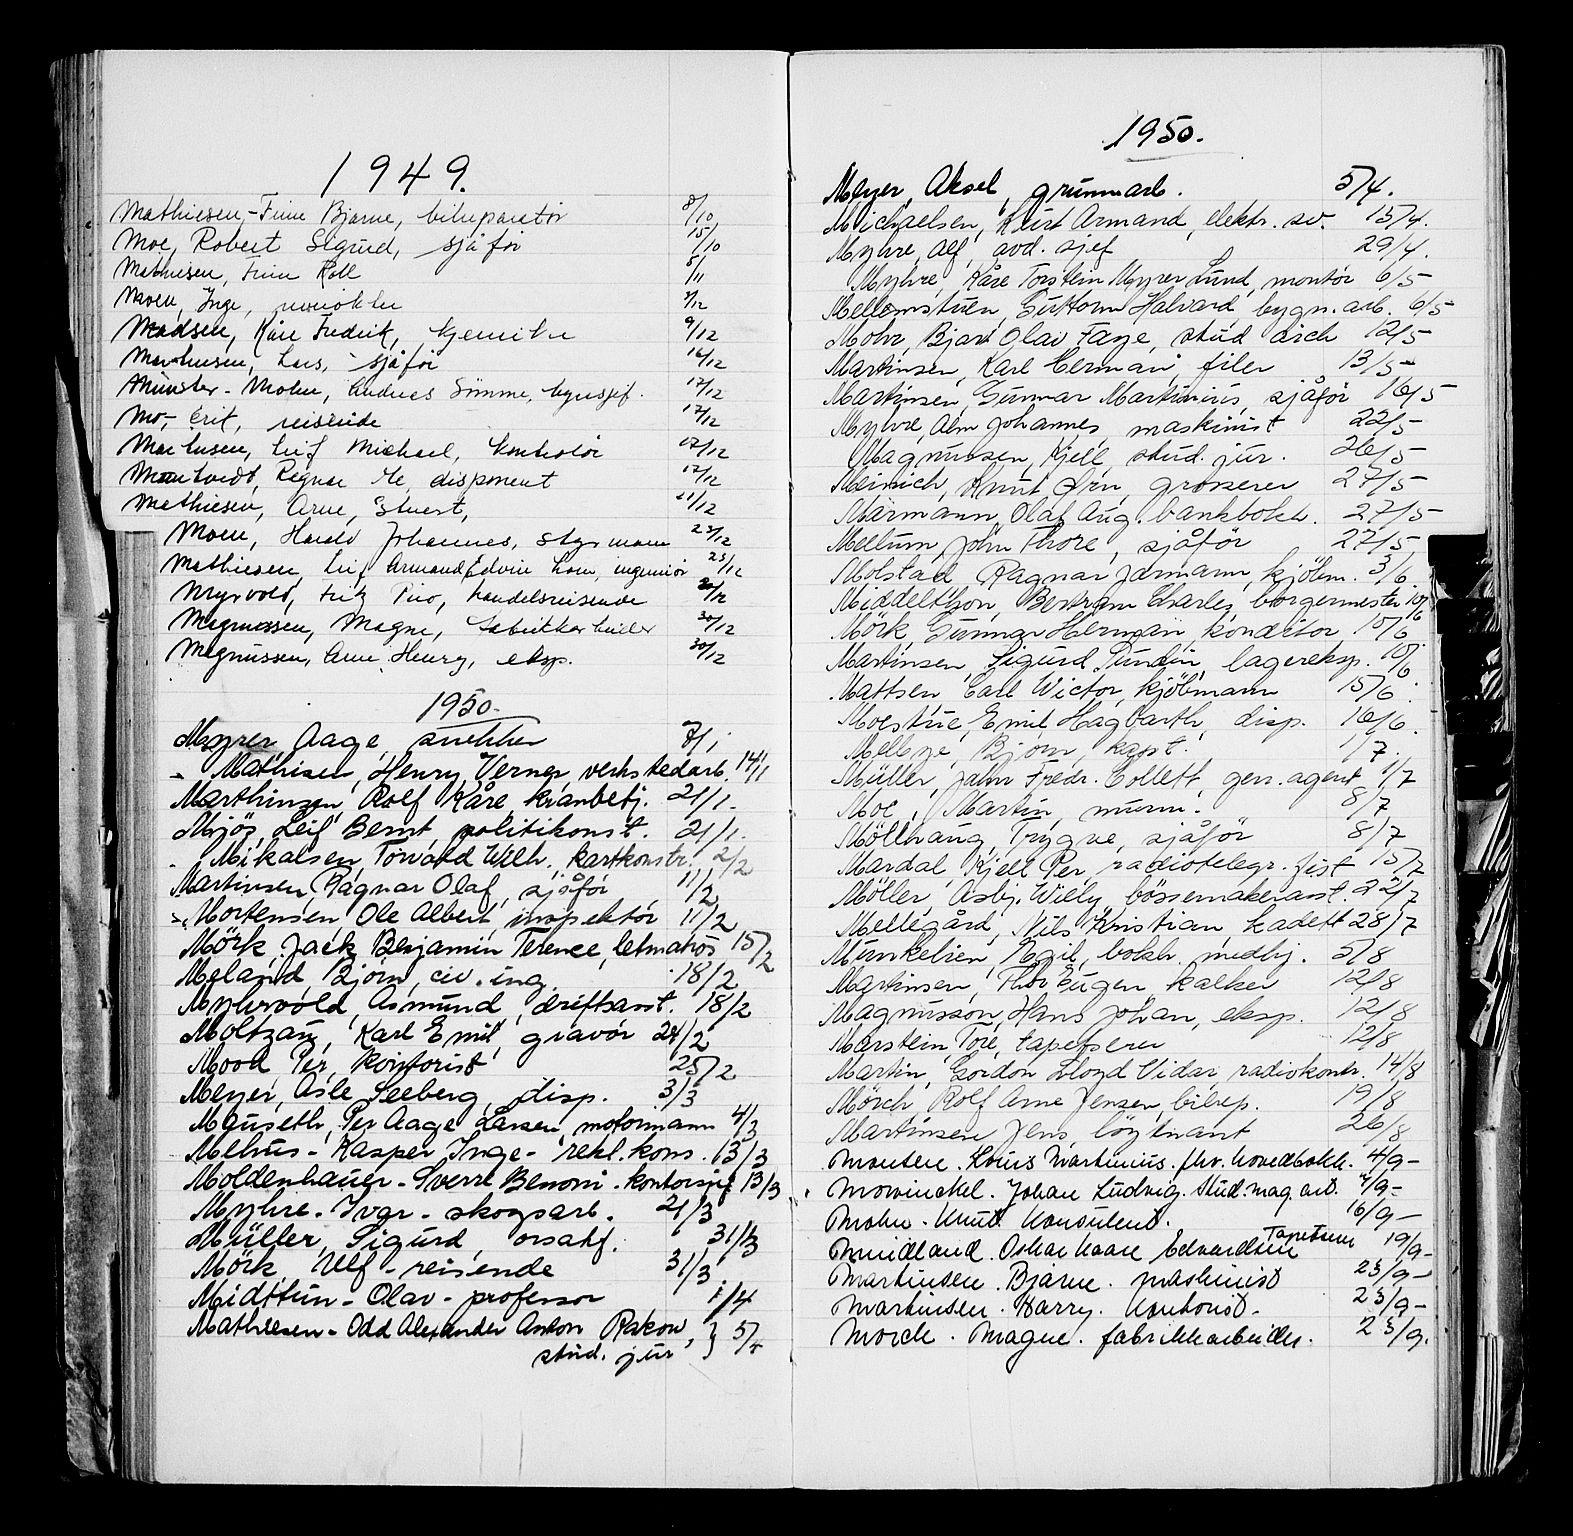 1949.
Mathiesen, Finn Bjarne, bilreparatør 8/10
Moe, Robert Sigurd, sjåfør 15/10
Mathiesen, Finn Roll 5/11
Moen, Inge, 3/12
Madsen, Kåre Fredrik, kjemiker 9/12
Marthinsen, Lars, sjåfør 16/12
Münster-Mohn, Andreas Sømme, byråsjef. 17/12
Mo, Erik, reisende 17/12
Marthinsen, Leif Michael, kontorist 17/12
Ragnar disponent 17/12
Mathiesen, Arne, Stuert, 21/12
Moen, Harald Johannes, styrmann 23/12
Mathiesen, Leif Armand Edvin Lorn, ingeniør 23/12
Myrvold, Fritz handelsreisende 30/12
Magnussen, Magne, fabrikkarbeider 30/12
Magnussen, Arne Henry, eksp. 30/12
1950.
Myrer, Aage, snekker 7/1
Mathisen, Henry Verner, verkstedarb. 14/1
Marthinsen, Rolf Kåre, kranbetj. 21/1.
Mjöz, Leif Bernt, politikonst. 21/1.
Mikalsen, Torvald Wilh. kartkonstr. 2/2
Martinsen, Ragnar Olaf, sjåför 11/2
Mortensen, Ole Albert, inspektör 11/2
Mörk, Jack Benjamin Terence, letmatros 15/2
Meland, Björn, civ. ing. 18/2
Myhrvold, Asmund, driftsasst. 18/2
Moltzau, Karl Emil, gravör 24/2
Mood Per, kontorist 25/2
Meyer, Asle Seeberg, disp. 3/3
Mauseth, Per Aage Larsen, motormann 4/3
Melhus - Kasper Inge - rekl. kons. 13/3
Moldenhauer - Sverre Benoni - kontorsjef 13/3
Myhre - Ivar - skogsarb. 21/3
Müller, Sigurd, orsakf. 31/3
Mörk Ulf - reisende 31/3
Midttun - Olav - professor 1/4
Mathiesen - Odd Alexander Anton Rakow, } 5/4
stud. jur
1950.
Meyer, Aksel, grunnarb. 5/4.
Michaelsen, Kurt Armand, elektr. sv. 15/4.
Myhre, Alf, avd. sjef 29/4.
Myhre, Kåre Torstein Myrer Lund, montör 6/5
Mellemstuen, Guttorm Halvard bygn. arb. 6/5
Mohr, Bjart Olav Faye, stud arch 12/5
Martinsen, Karl Herman, filer 13/5
Martinsen, Gunnar Martinius, sjåför 16/5
Myhre, Alm Johannes, maskinist 22/5
Magnussen, Kjell, stud. jur. 26/5
Meinich, Knut Ørn, grosserer 27/5
Marmann, Olaf Aug. bankbokh. 27/5
Mellum, John Thore, sjåför 27/5
Molstad, Ragnar Jarmann, kjölem. 3/6
Middelthon, Bertram Charles, borgermester 10/6
Mörk, Gunnar Herman, konditor 10/6
Martinsen, Sigurd Sundin, lagereksp. 10/6
Mattsen, Carl Wictor, kjöbmann 15/6
Moestue, Emil Hagbarth, disp. 16/6
Melbye, Bjorn, kapt. 1/7.
Müller, Jahn Fredr. Collett, gen. agent 1/7
Moe, Martin, murm. 8/7
Möllhaug, Trygve, sjåför 8/7
Mardal, Kjell Per, radiotelegr. fist 15/7
Möller, Asbj. Willy, bössemakerasst. 22/7
Mellegård, Nils Kristian, kadett 28/7
Munkelien, Egil, bokh. medhj. 5/8
Martinsen, Thor Eugen kalker 12/8
Magnusson, Hans Johan, eksp. 12/8
Marstein, Tore, tapetserer 12/8
Martin, Gordon Lloyd Vidar, radiokontr. 14/8
Mörch, Rolf Arne Jensen, bilrep. 19/8
Martinsen Jens, löytnant 26/8
Monsen. Louis Martinius. fhv. hovedbokh. 4/9-
Mowinckel. Johan Ludvig. Stud. mag. art. 7/9-
Mohn. Knut Konsulent. 16/9-
Midland. Oskar Kaare Edvardsen Tapetserer 19/9-
Martinsen. Bjarne. maskinist 23/9-
Martinsen. Harry. kontorist. 23/9-
Morch. Magne. fabrikkarbeider. 23/9.